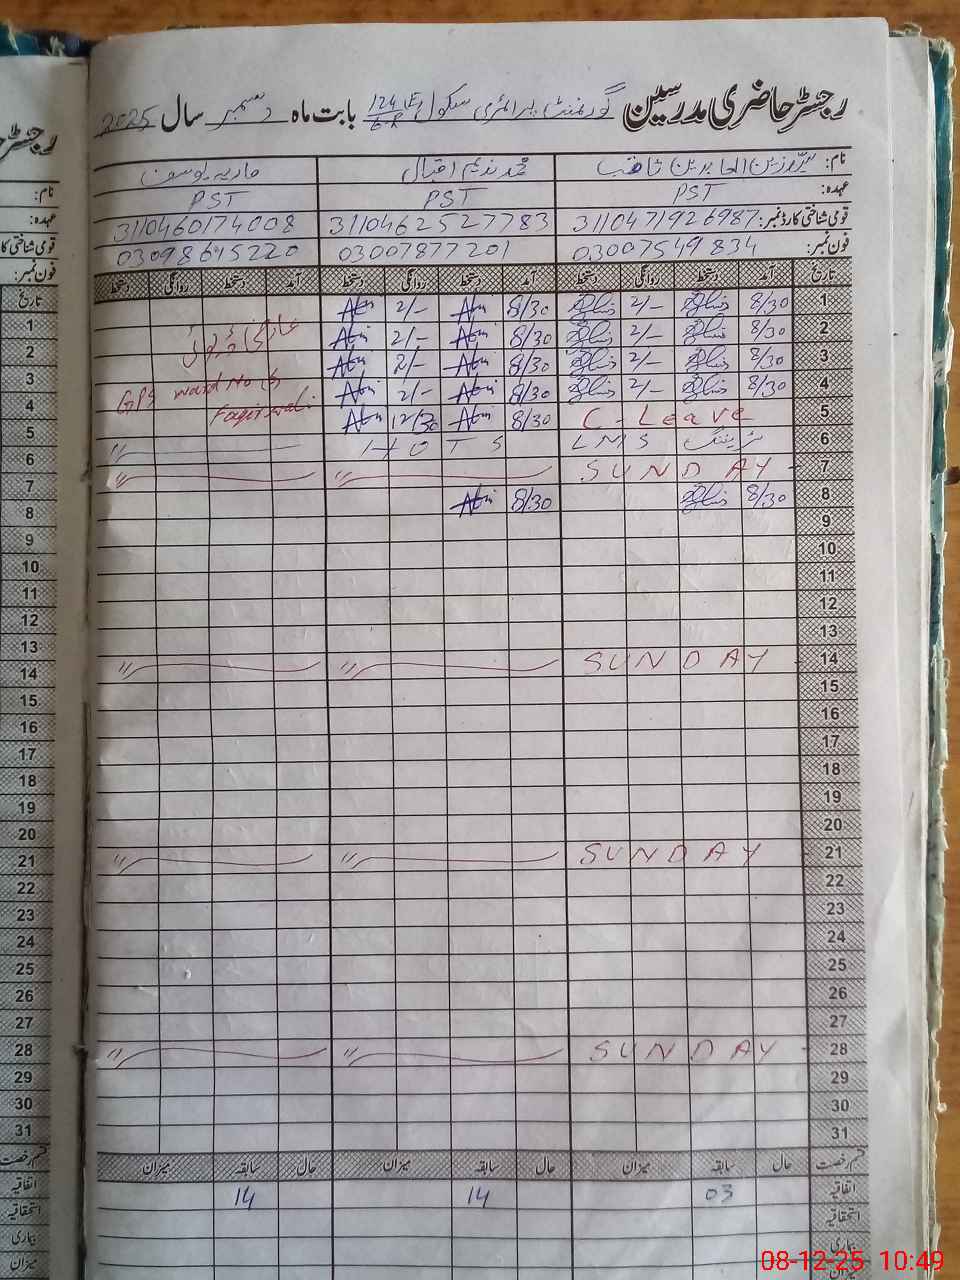 رجسٹر حاضری مدرسین گورنمنٹ پرائمری سکول 124/6R (E) بابت ماہ دسمبر سال 2025
نام: محمد ندیم اقبال ماریہ یوسف
عہدہ: PST PST PST
قومی شناختی کارڈ نمبر: 3110471926987 3110462527783 3110460174008
فون نمبر: 03007549834 03007877201 03098645220
تاریخ آمد دستخط روانگی دستخط آمد دستخط روانگی دستخط آمد دستخط روانگی دستخط
1 8/30 2/- 8/30 2/-
2 8/30 2/- 8/30 2/- عارضی ڈیوٹی
3 8/30 2/- 8/30 2/-
4 8/30 2/- 8/30 2/- GPS ward No
5 C-Leave 8/30 12/30 Faqirwali
6 LMS ٹریننگ H O T S 〃
7 SUNDAY 〃 〃
8 8/30 8/30
9
10
11
12
13
14 SUNDAY 〃 〃
15
16
17
18
19
20
21 SUNDAY 〃 〃
22
23
24
25
26
27
28 SUNDAY 〃 〃
29
30
31
قسم رخصت حال سابقہ میزان حال سابقہ میزان حال سابقہ میزان
اتفاقیہ 03 14 14
استحقاقیہ
بیماری
میزان
08-12-25 10:49